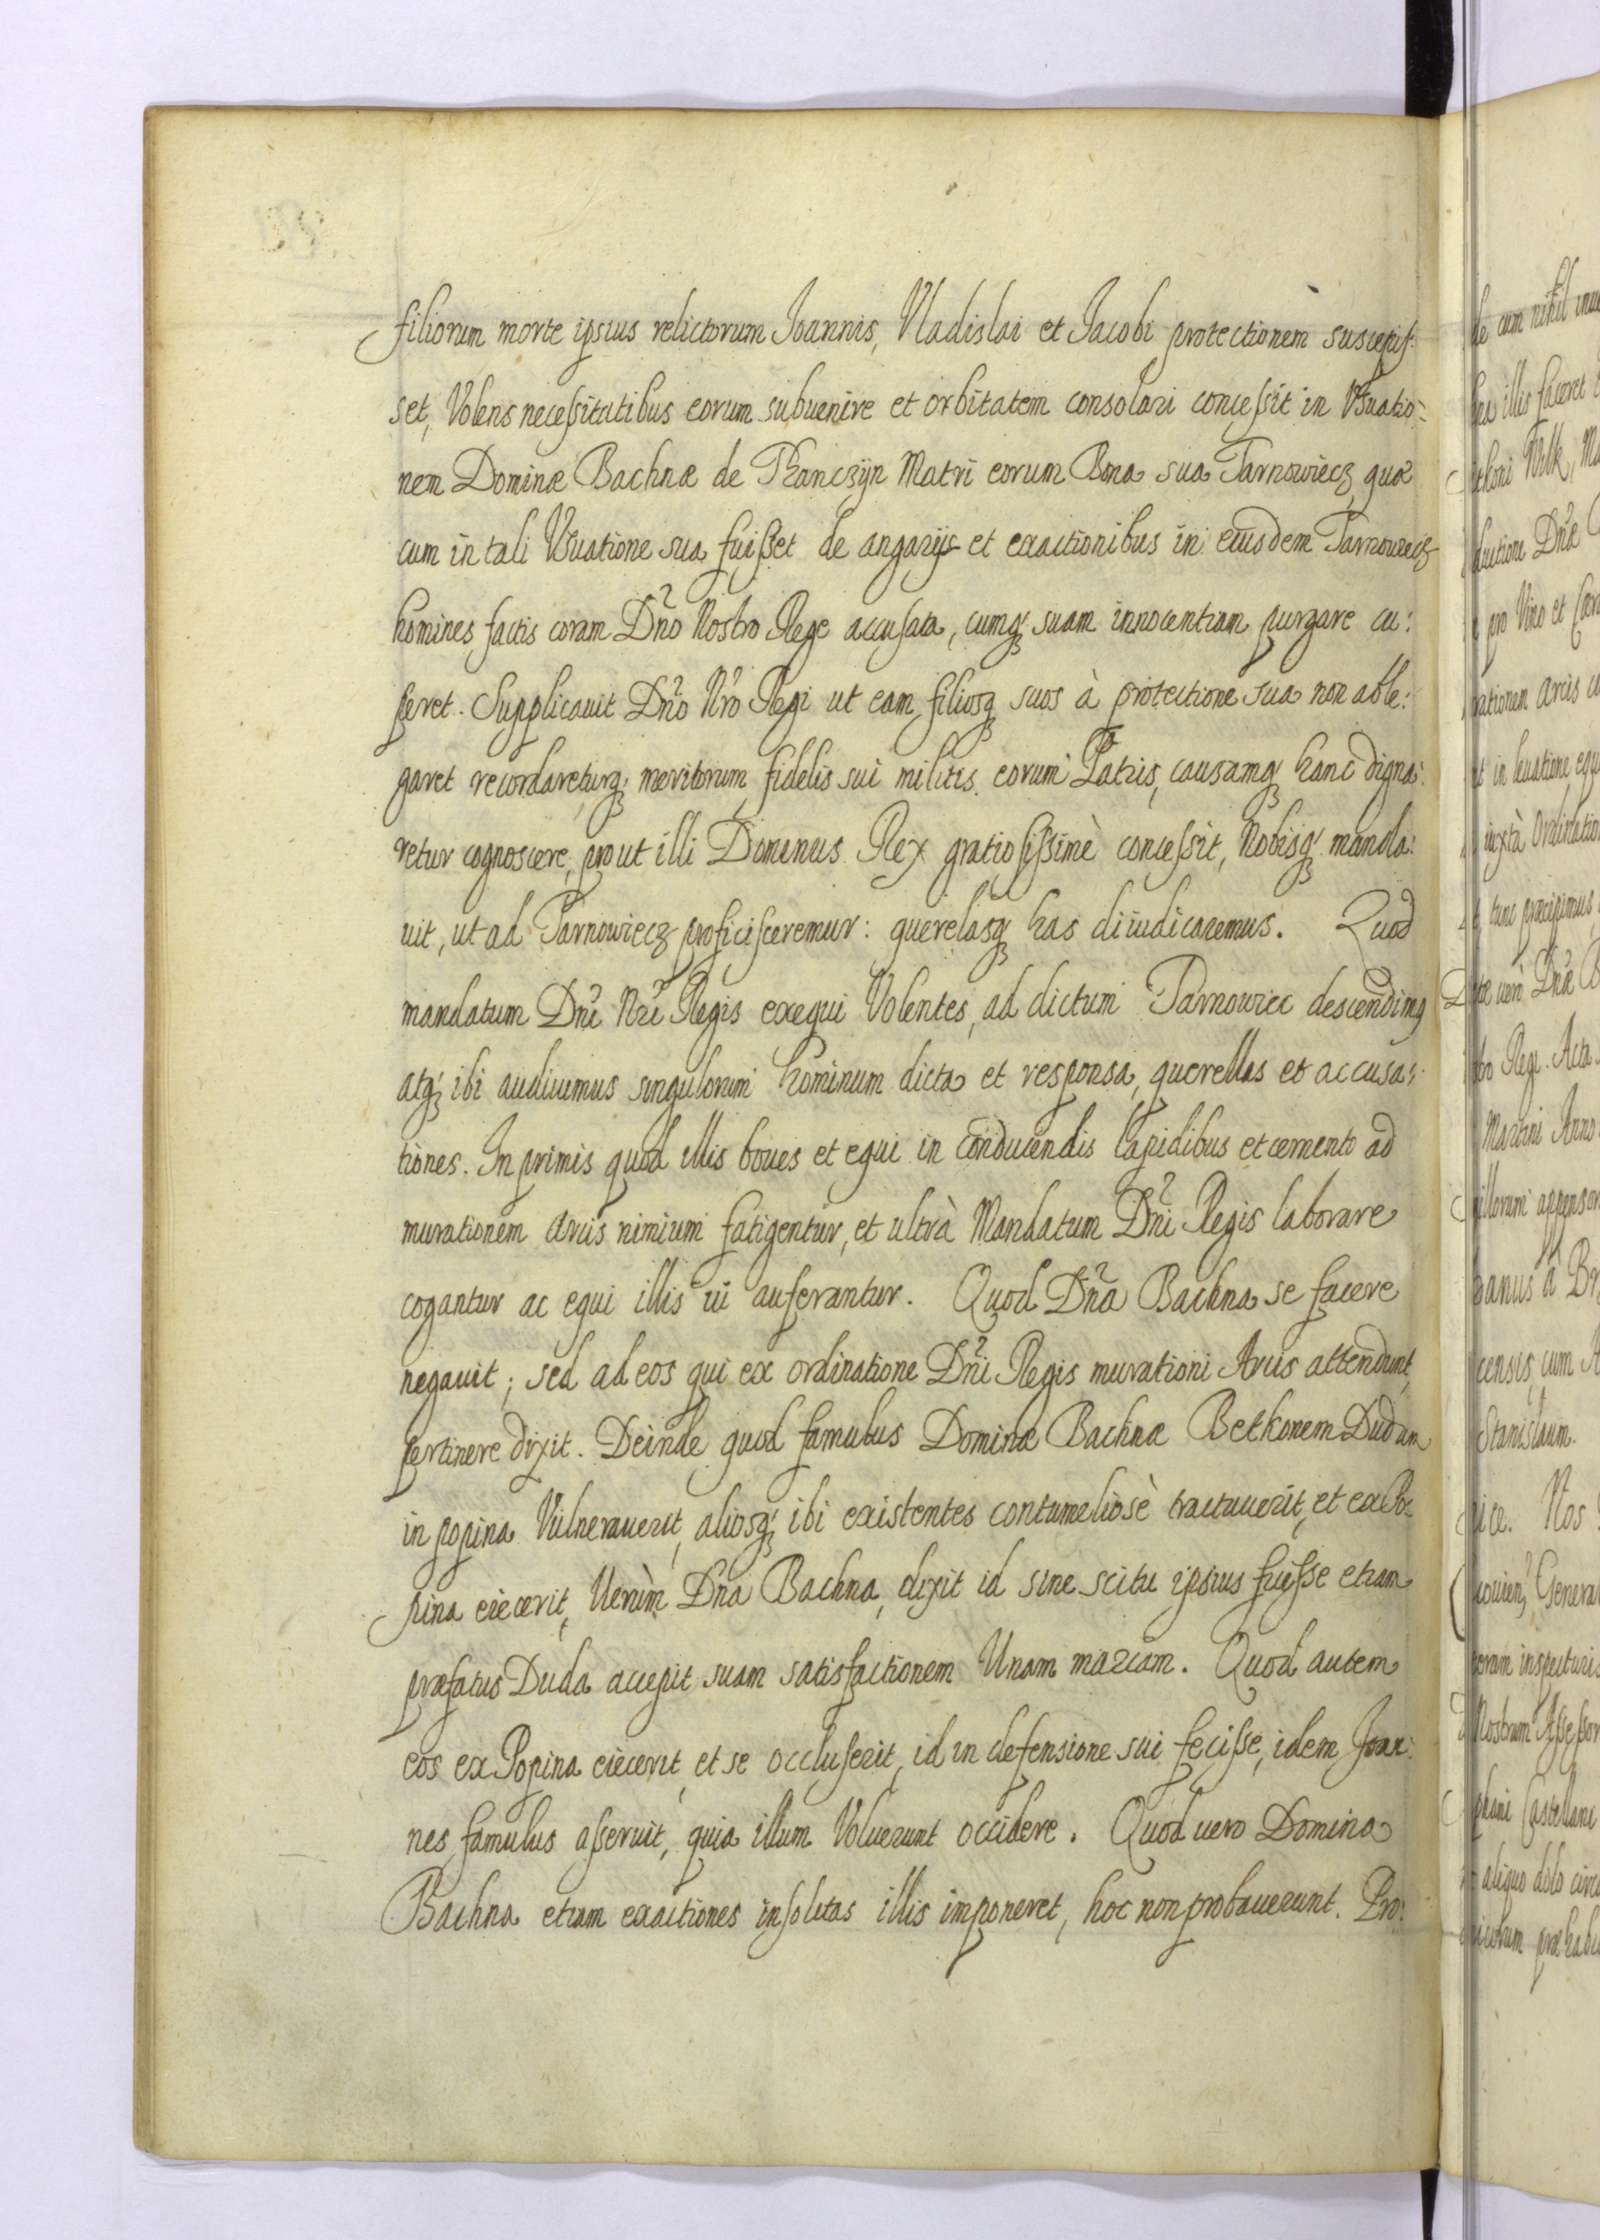 filiorum morte ipsius relictorum Joannis, Vladislai et Jacobi protectionem suscepis-
set, Volens necessitatibus eorum subuenire et orbitatem consolari concessit in Vuatio-
nem Dominæ Bachnæ de Thanczijn Matri eorum Bona sua Tarnowiecz, quæ
cum in tali Vuatione sua fuisset de angarijs et exactionibus in eiusdem Tarnowiecz
homines factis coram Dño Nostro Rege accusata, cumq suam innocentiam purgare cu:
peret. Supplicauit Dño Nro Regi ut eam filiosq suos à protectione sua non able:
garet recordareturq meritorum fidelis sui militis eorum Patris, causamq hanc digna:
retur cognoscere, prout illi Dominus Rex gratiosissimè concessit, Nobisq manda:
uit, ut ad Tarnowiecz proficisceremur: querelasq has diiudicaremus. Quod
mandatum Dñi Nri Regis exequi Volentes, ad dictum Tarnowiec descendimq
atq ibi audiuimus singulorum hominum dicta et responsa, querellas et accusa:
tiones. In primis quod illis boues et equi in conducendis lapidibus et cemento ad
murationem Arcis nimium fatigentur, et ultrà Mandatum Dñi Regis laborare
cogantur ac equi illis ui auferantur. Quod Dña Bachna se facere
negauit; sed ad eos qui ex ordinatione Dñi Regis murationi Arcis attendunt,
pertinere dixit. Deinde quod famulus Dominæ Bachnæ Bethonem Dudam
in popina Vulnerauerit, aliosq ibi existentes contumeliosè tractauerit, et ex Po:
pina eiecerit, Verùm Dna Bachna, dixit id sine scitu ipsius fuisse etiam
præfatus Duda accepit suam satisfactionem Unam marcam. Quod autem
eos ex Popina eiecerit, et se occluserit, id in defensione sui fecisse, idem Joan:
nes famulus asseruit, quia illum Voluerunt occidere. Quod uero Domina
Bachna etiam exactiones insolitas illis imponeret, hoc non probauerunt. Pro: